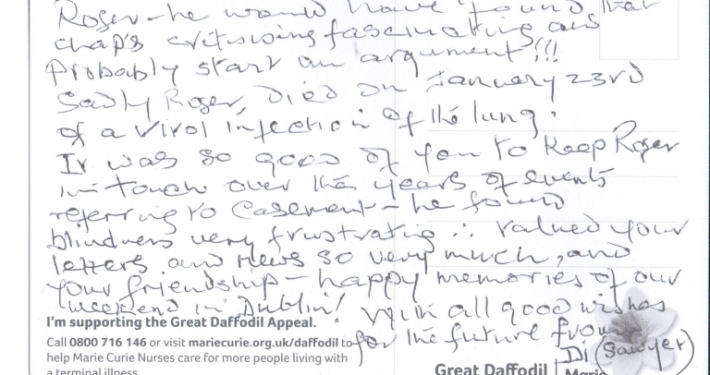 Roger - he would have found that
chap's critiscing fascinating and
Probably start an argument!!!
Sadly Roger, Died on January 23rd
of a virol infection of the lung.
It was so good of you to keep Roger
in touch over the years of events
referring to Casement - he found
blindness very frustrating ∴ valued your
letters and news so very much, and
your friendship - happy memories of our
weekend in Dublin! With all good wishes
for the future from
Di (Sawyer)
I'm supporting the Great Daffodil Appeal.
Call 0800 716 146 or visit mariecurie.org.uk/daffodil to
help Marie Curie Nurses care for more people living with
a terminal illness
Great Daffodil
Marie